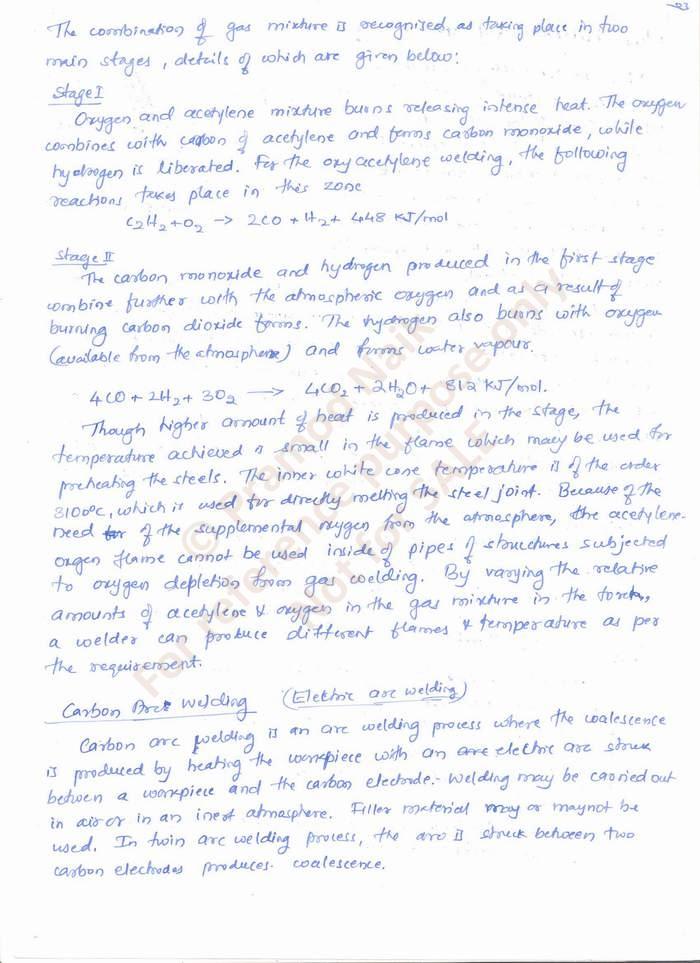 23
The combination of gas mixture is recognised as taking place in two
main stages, details of which are given below:
Stage I
Oxygen and acetylene mixture burns releasing intense heat. The oxygen
combines with carbon of acetylene and forms carbon monoxide, while
hydrogen is liberated. For the oxyacetylene welding, the following
reactions takes place in this zone
C₂H₂ + O₂ → 2CO + H₂ + 448 KJ/mol
Stage II
The carbon monoxide and hydrogen produced in the first stage
combine further with the atmospheric oxygen and as a result of
burning carbon dioxide forms. The hydrogen also burns with oxygen
(available from the atmosphere) and forms water vapour.
4CO + 2H₂ + 3O₂ → 4CO₂ + 2H₂O + 812 KJ/mol.
Though higher amount of heat is produced in the stage, the
temperature achieved is small in the flame which may be used for
preheating the steels. The inner white cone temperature is of the order
3100°C, which is used for directly melting the steel joint. Because of the
need for of the supplemental oxygen from the atmosphere, the acetylene-
oxgen flame cannot be used inside of pipes of structures subjected
to oxygen depletion from gas welding. By varying the relative
amounts of acetylene & oxygen in the gas mixture in the torch,
a welder can produce different flames & temperature as per
the requirement.
Carbon Arc Welding (Electric arc welding)
Carbon arc welding is an arc welding process where the coalescence
is produced by heating the workpiece with an arc electric arc struck
between a workpiece and the carbon electrode. Welding may be carried out
in air or in an inert atmosphere. Filler material may or may not be
used. In twin arc welding process, the arc is struck between two
carbon electrodes produces coalescence.
© Pramod Naik
For reference purpose only
Not for SALE